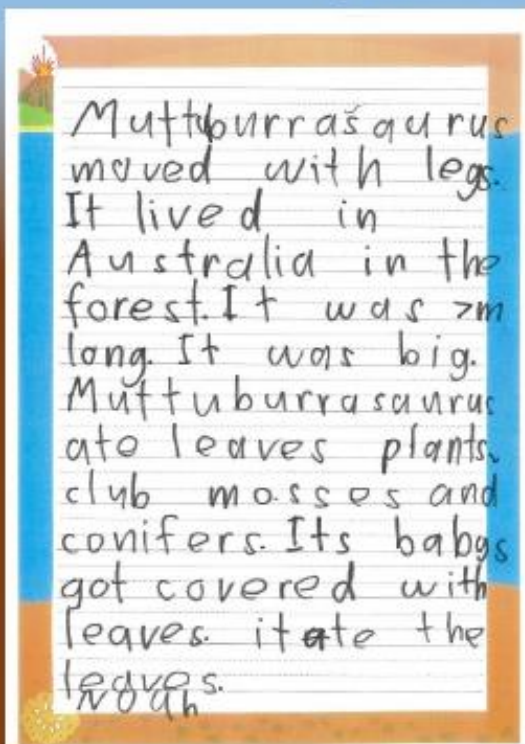 Muttuburrasaurus
moved with legs.
It lived in
Australia in the
forest. It was 7m
long. It was big.
Muttuburrasaurus
ate leaves plants,
club mosses and
conifers. Its babys
got covered with
leaves. it ate the
leaves.
Noah